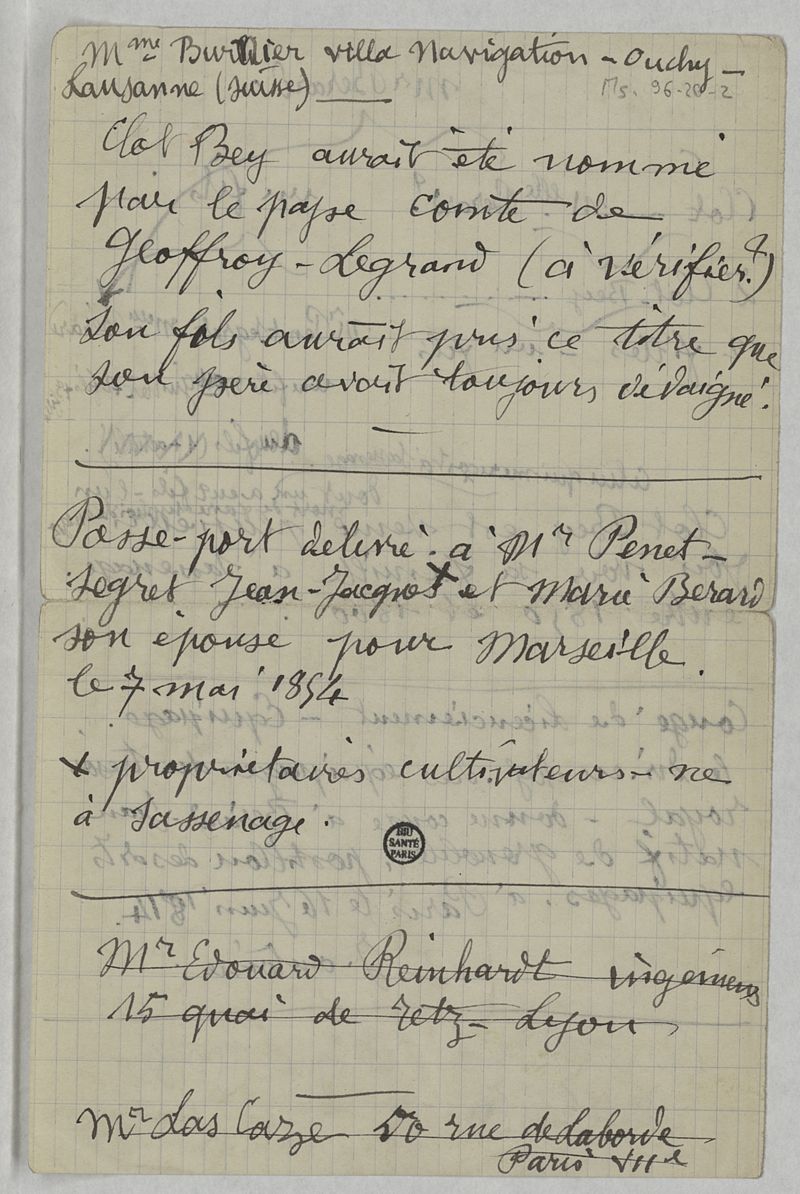 Mme Burnier villa Navigation - Ouchy -
Lausanne (Suisse)
Ms. 96-20-2
Clot Bey aurait été nommé
par le pape comte de
Geoffroy-Legrand (à vérifier?)
Son fils aurait pris ce titre que
son père avait toujours dédaigné.
Passe-port delivré à Mr Penet-
Segret Jean-Jacques x et Marie Berard
son épouse pour Marseille.
le 7 mai 1854
x propriétaires cultivateurs - né
à Sassenage.
BIU
SANTÉ
PARIS
Mr Edouard Reinhardt ingenieur
15 quai de Retz - Lyon
Mr Las Caze 50 rue de Laborde
Paris